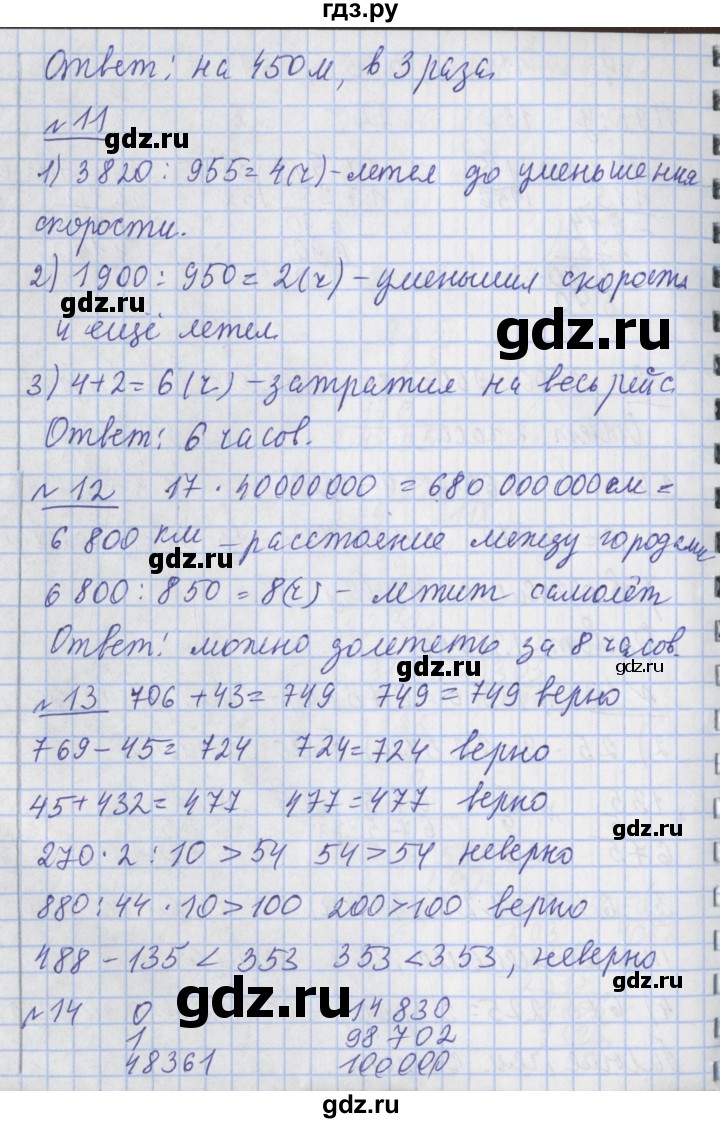 гдз.ру
Ответ: на 450 м, в 3 раза.
№ 11
gdz.ru
1) 3820 : 955 = 4(ч) - летел до уменьшения
скорости.
2) 1900 : 950 = 2(ч) - уменьшил скорость
gdz.ru
и ещё летел.
gdz.ru
3) 4+2 = 6 (ч) - затратил на весь рейс
Ответ: 6 часов.
№ 12 17 · 40000000 = 680 000 000 см =
6 800 км - расстояние между городами
gdz.ru
6 800 : 850 = 8(ч) - летит самолёт
Ответ: можно долететь за 8 часов.
gdz.ru
gdz.ru
№ 13 706 + 43 = 749 749 = 749 верно
769 - 45 = 724 724 = 724 верно
45 + 432 = 477 477 = 477 верно
gdz.ru
270 · 2 : 10 > 54 54 > 54 неверно
880 : 44 · 10 > 100 200 > 100 верно
488 - 135 < 353 353 < 353, неверно
gdz.ru
gdz.ru
№ 14 0 14 830
1 98 702
48361 100000
gdz.ru